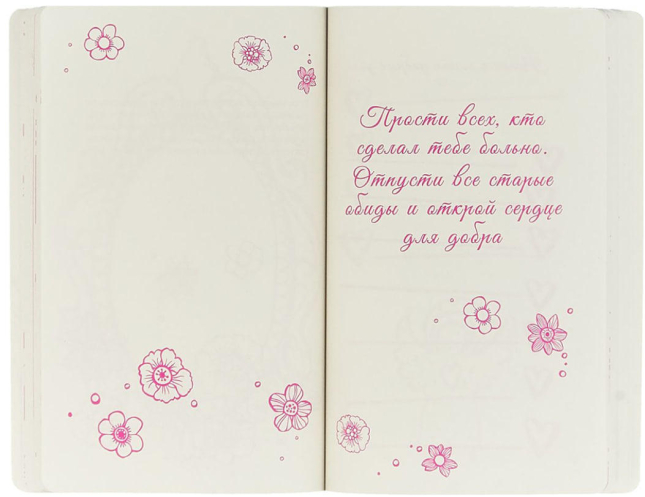 Прости всех, кто
сделал тебе больно.
Отпусти все старые
обиды и открой сердце
для добра